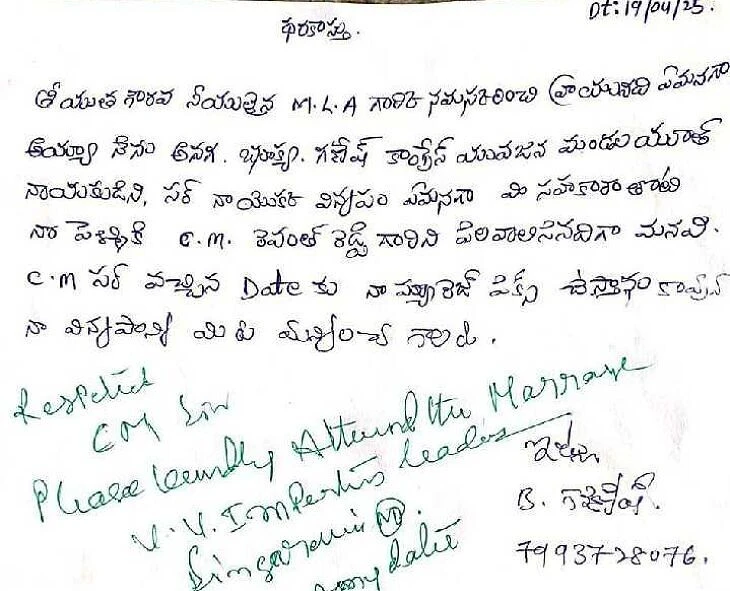 Dt: 19/04/25.
ధరకాస్తు.
శ్రీయుత గౌరవ నీయులైన M.L.A గారికి నమస్కరించి వ్రాయునది ఏమనగా
అయ్యా నేను అనగ. భూక్యా. గణేష్ కాంగ్రేస్ యువజన మండల యూత్
నాయకుడిని, సర్ నా యొక్క విన్నపం ఏమనగా మి సహకారం తోటి
నా పెళ్ళికి C.M. రేవంత్ రెడ్డి గారిని పిలవాల్సినదిగా మనవి.
C.M సర్ వచ్చిన Date కు నా మ్యారేజ్ పిక్స్ చేస్తాను కావున
నా విన్నపాన్ని మిరు మన్నించ గలరు.
Respected
CM Sir
Please kindly Attend the Marrage
V.V. Importins leader
ఇట్లు
B. గణేష్.
79937-28076.